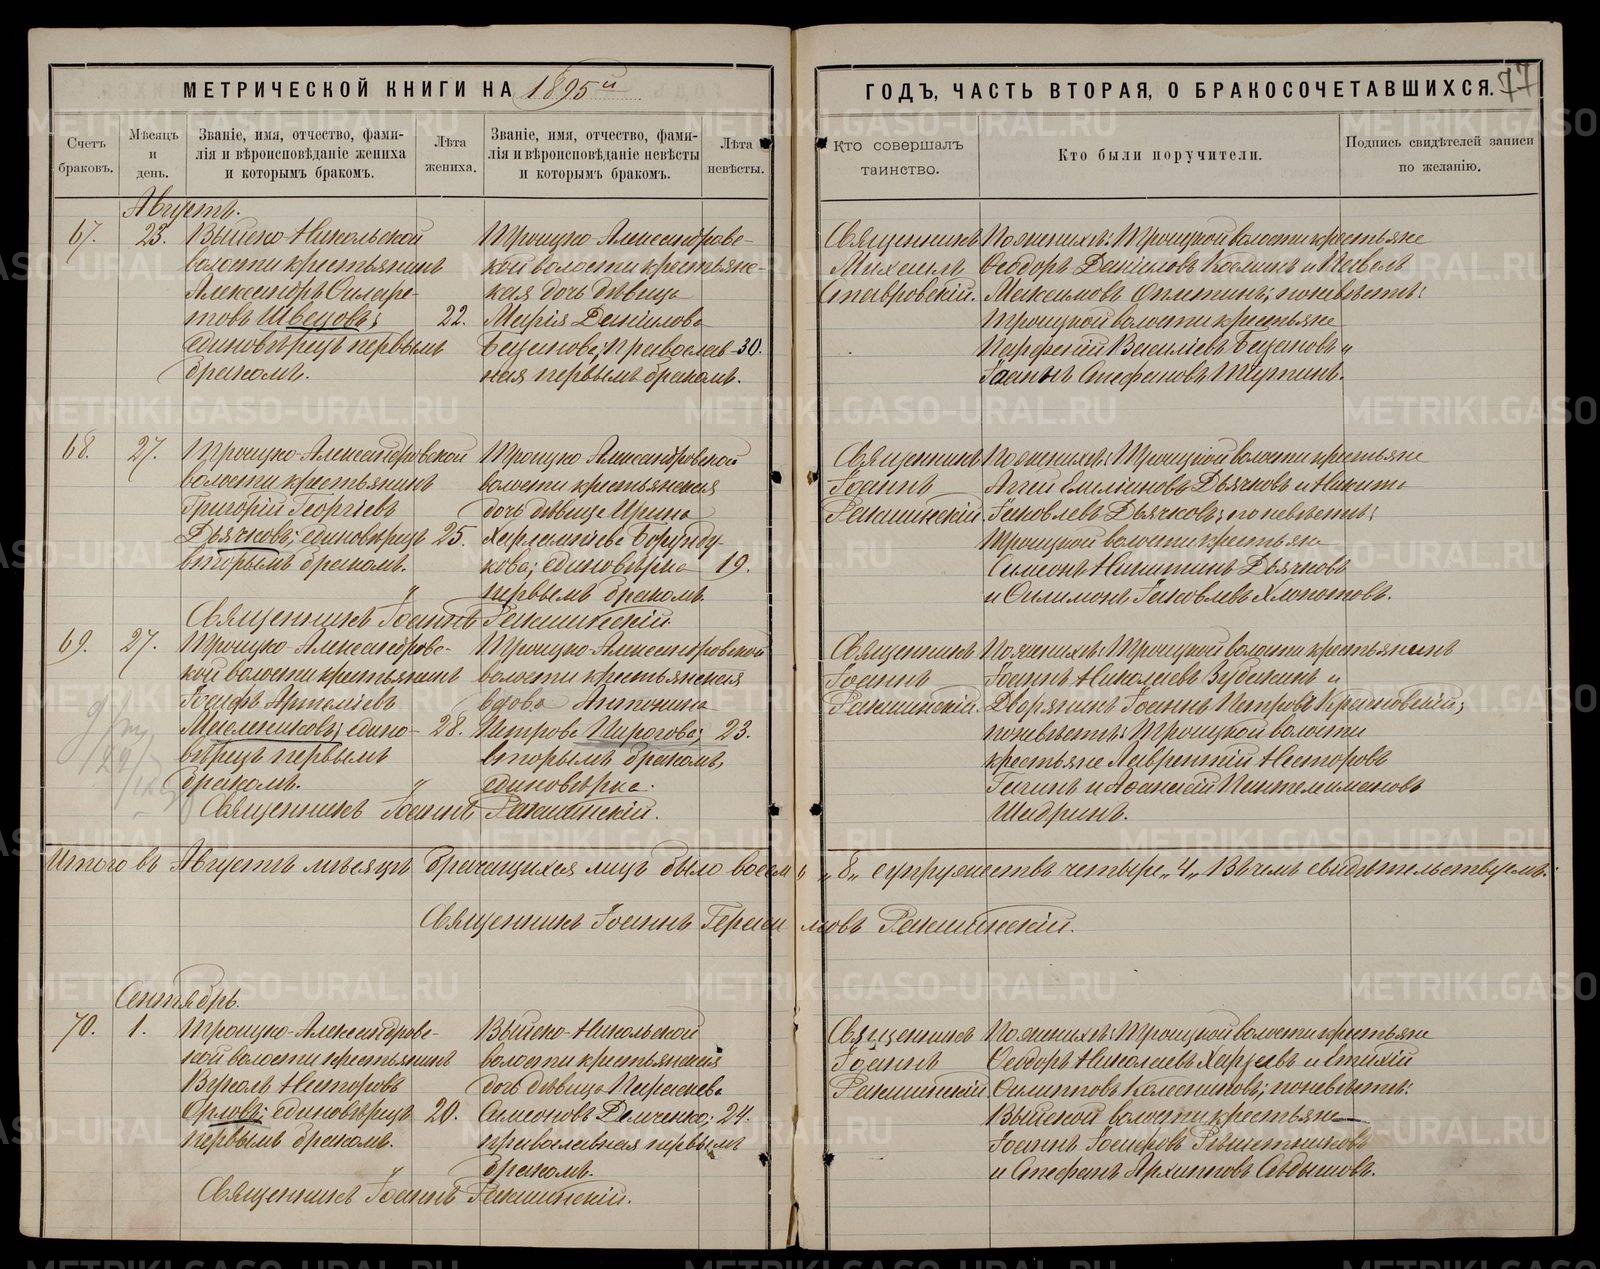 МЕТРИЧЕСКОЙ КНИГИ НА 1895й
ГОДЪ, ЧАСТЬ ВТОРАЯ, О БРАКОСОЧЕТАВШИХСЯ. 77
Счетъ браковъ.
Мѣсяцъ и день.
Званіе, имя, отчество, фами-
лія и вѣроисповѣданіе жениха
и которымъ бракомъ.
Лѣта жениха.
Званіе, имя, отчество, фами-
лія и вѣроисповѣданіе невѣсты
и которымъ бракомъ.
Лѣта невѣсты.
Кто совершалъ таинство.
Кто были поручители.
Подпись свидѣтелей записи по желанію.
Августъ.
67. 23.
Выйско-Никольской
волости крестьянинъ
Александръ Филаре-
товъ Швецовъ;
единовѣрецъ первымъ
бракомъ.
22.
Троицко Александровс-
кой волости крестьянс-
кая дочь дѣвица
Марія Данилова
Баганова, православ-
ная первымъ бракомъ.
30.
Священникъ
Михаилъ
Ставровскій.
По женихѣ: Троицкой волости крестьяне
Ѳеодоръ Даниловъ и Павелъ
Максимовъ; по невѣстѣ:
Троицкой волости крестьяне
Парфеній Василіевъ Багановъ и
Іоаннъ Стефановъ
68. 27.
Троицко-Александровской
волости крестьянинъ
Григорій Георгіевъ
Дьячковъ; единовѣрецъ
вторымъ бракомъ.
25.
Троицко Александровской
волости крестьянская
дочь дѣвица Ирина
Харлампіева Борунду-
кова; единовѣрка
первымъ бракомъ.
19.
Священникъ
Іоаннъ
Ракшинскій.
По женихѣ: Троицкой волости крестьяне
Аггей Емиліановъ Дьячковъ и Никита
Іаковлевъ Дьячковъ; по невѣстѣ:
Троицкой волости крестьяне
Симеонъ Никитинъ Дьячковъ
и Филимонъ Іаковлевъ Хлопотовъ.
Священникъ Іоаннъ Ракшинскій
69. 27.
Троицко-Александровс-
кой волости крестьянинъ
Іосифъ Артеміевъ
Масленниковъ; едино-
вѣрецъ первымъ
бракомъ.
28.
Троицко-Александровской
волости крестьянская
вдова Антонина
Петрова Пирогова;
вторымъ бракомъ,
единовѣрка.
23.
Священникъ
Іоаннъ
Ракшинскій.
По женихѣ: Троицкой волости крестьянинъ
Іоаннъ Николаевъ Зубакинъ и
Дворянинъ Іоаннъ Петровъ;
по невѣстѣ: Троицкой волости
крестьяне Лаврентій Несторовъ
и Аѳанасій Пантелимоновъ
Шадринъ.
Священникъ Іоаннъ Ракшинскій.
Итого въ Августѣ мѣсяцѣ брачащихся лицъ было восемь „8„ супружествъ четыре „4„ Въ чемъ свидѣтельствуемъ:
Священникъ Іоаннъ Герасимовъ Ракшинскій.
Сентябрь.
70. 1.
Троицко-Александровс-
кой волости крестьянинъ
Викулъ Несторовъ
Орловъ; единовѣрецъ
первымъ бракомъ.
20.
Выйско-Никольской
волости крестьянская
дочь дѣвица Параскева
Симеонова;
православная первымъ
бракомъ.
24.
Священникъ
Іоаннъ
Ракшинскій.
По женихѣ: Троицкой волости крестьяне
Ѳеодоръ Николаевъ и Евтихій
Филипповъ Колесниковъ; по невѣстѣ:
Выйской волости крестьяне
Іоаннъ Іосифовъ Рѣшетниковъ
и Стефанъ Архиповъ Сѣдышовъ.
Священникъ Іоаннъ Ракшинскій.
METRIKI.GASO-URAL.RU